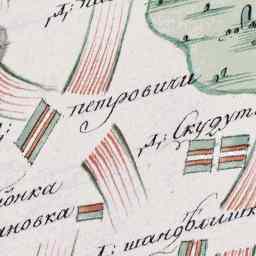 д:
петровичи
д: Скудут
д:
онка
ановка
д: шандблишк